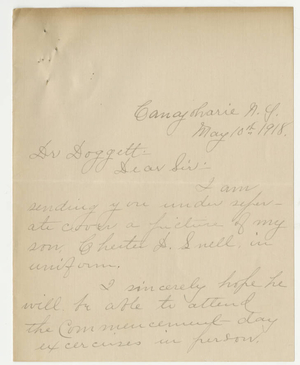 Canajoharie N.Y.
May 10th, 1918.
Dr Doggett:
Dear Sir:-
I am
sending you under separ-
ate cover a picture of my
son, Chester D. Snell, in
uniform.
I sincerely hope he
will be able to attend
the Commencement day
excercises in person.